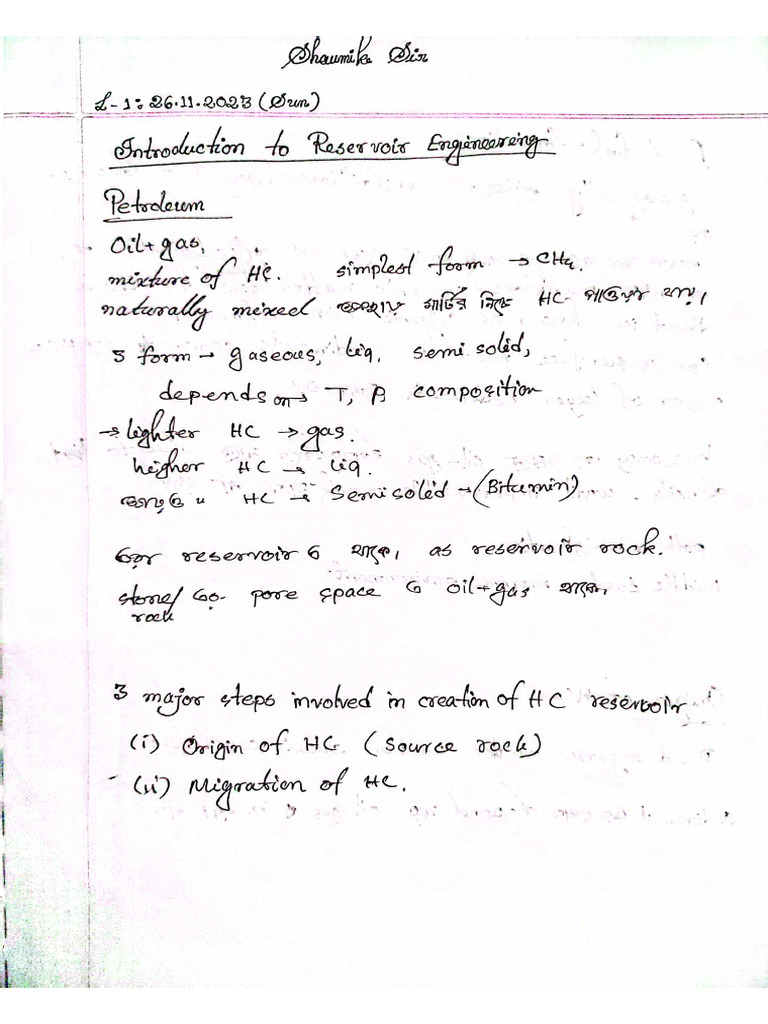 Shaumik Sir
L-1: 26.11.2023 (Sun)
Introduction to Reservoir Engineering
Petroleum
Oil + gas,
mixture of HC. simplest form → CH4.
naturally mixed মাটির নিচে HC পাওয়া যায়।
3 form → gaseous, liq, semi solid,
depends on → T, P, composition
→ lighter HC → gas.
higher HC → liq.
" HC → Semisolid → (Bitumin)
reservoir এ থাকে, as reservoir rock.
stone/rock এর pore space এ oil+gas থাকে,
3 major steps involved in creation of HC reservoir
(i) Origin of HC (Source rock)
(ii) Migration of HC.